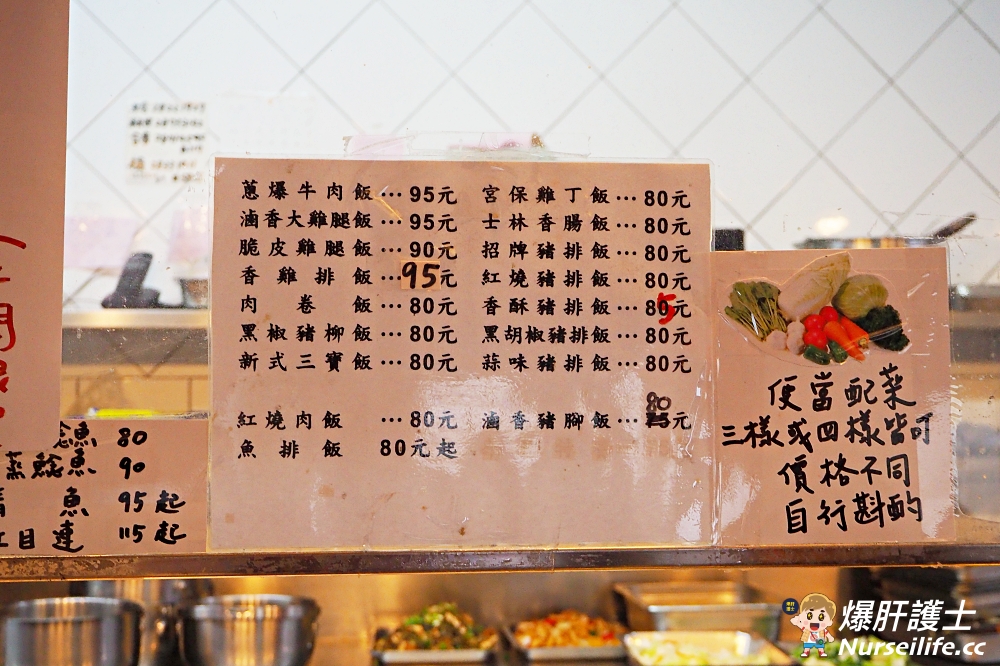 蔥爆牛肉飯…95元
滷香大雞腿飯…95元
脆皮雞腿飯…90元
香雞排飯…95元
肉卷飯…80元
黑椒豬柳飯…80元
新式三寶飯…80元
紅燒肉飯…80元
魚排飯 80元起
宮保雞丁飯…80元
士林香腸飯…80元
招牌豬排飯…80元
紅燒豬排飯…80元
香酥豬排飯…85元
黑胡椒豬排飯…80元
蒜味豬排飯…80元
滷香豬腳飯…80元
魚 80
蒸鯰魚 90
魚 95起
紅目連 115起
便當配菜
三樣或四樣皆可
價格不同
自行斟酌
爆肝護士
Nurseilife.cc